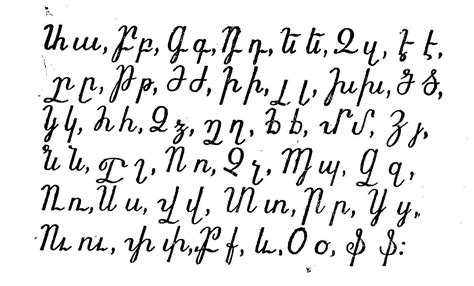 Ա ա, Բ բ, Գ գ, Դ դ, Ե ե, Զ զ, Է է,
Ը ը, Թ թ, Ժ ժ, Ի ի, Լ լ, Խ խ, Ծ ծ,
Կ կ, Հ հ, Ձ ձ, Ղ ղ, Ճ ճ, Մ մ, Յ յ,
Ն ն, Շ շ, Ո ո, Չ չ, Պ պ, Ջ ջ,
Ռ ռ, Ս ս, Վ վ, Տ տ, Ր ր, Ց ց,
Ու ու, Փ փ, Ք ք, և, Օ օ, Ֆ ֆ: